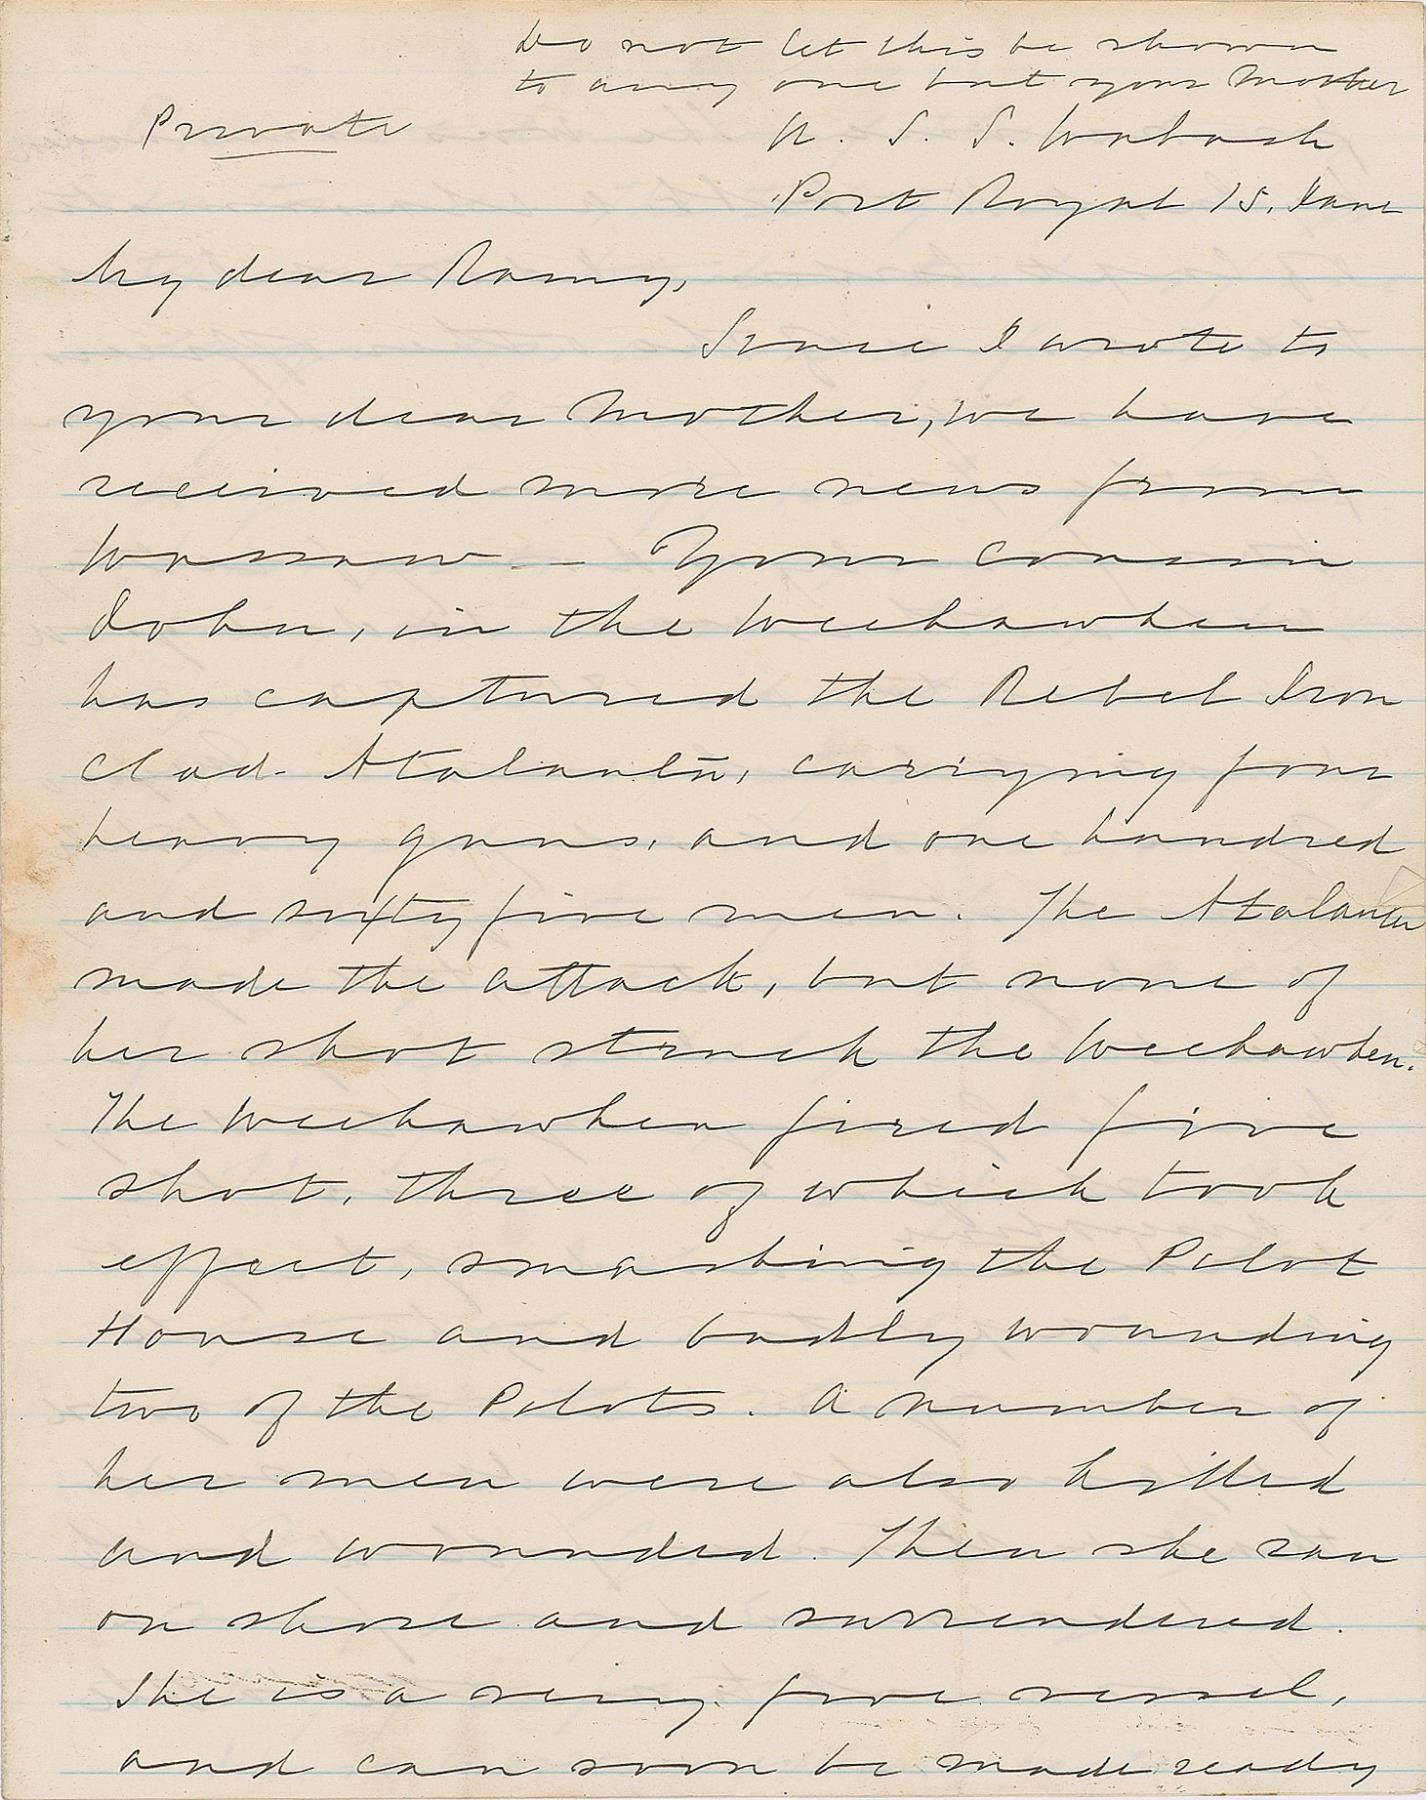 Do not let this be shown
to any one but your Mother
Private
U. S. S. Wabash
Port Royal 15, June
My dear Romy,
Since I wrote to
your dear Mother, we have
received more news from
Wassaw — Your cousin
John, in the Weehawken
has captured the Rebel Iron
Clad- Atalanta, carrying four
heavy guns, and one hundred
and sixty five men. The Atalanta
made the attack, but none of
her shot struck the Weehawken.
The Weehawken fired five
shot, three of which took
effect, smashing the Pilot
House and badly wounding
two of the Pilots. A number of
her men were also killed
and wounded. Then she ran
on shore and surrendered.
She is a very fine vessel,
and can soon be made ready